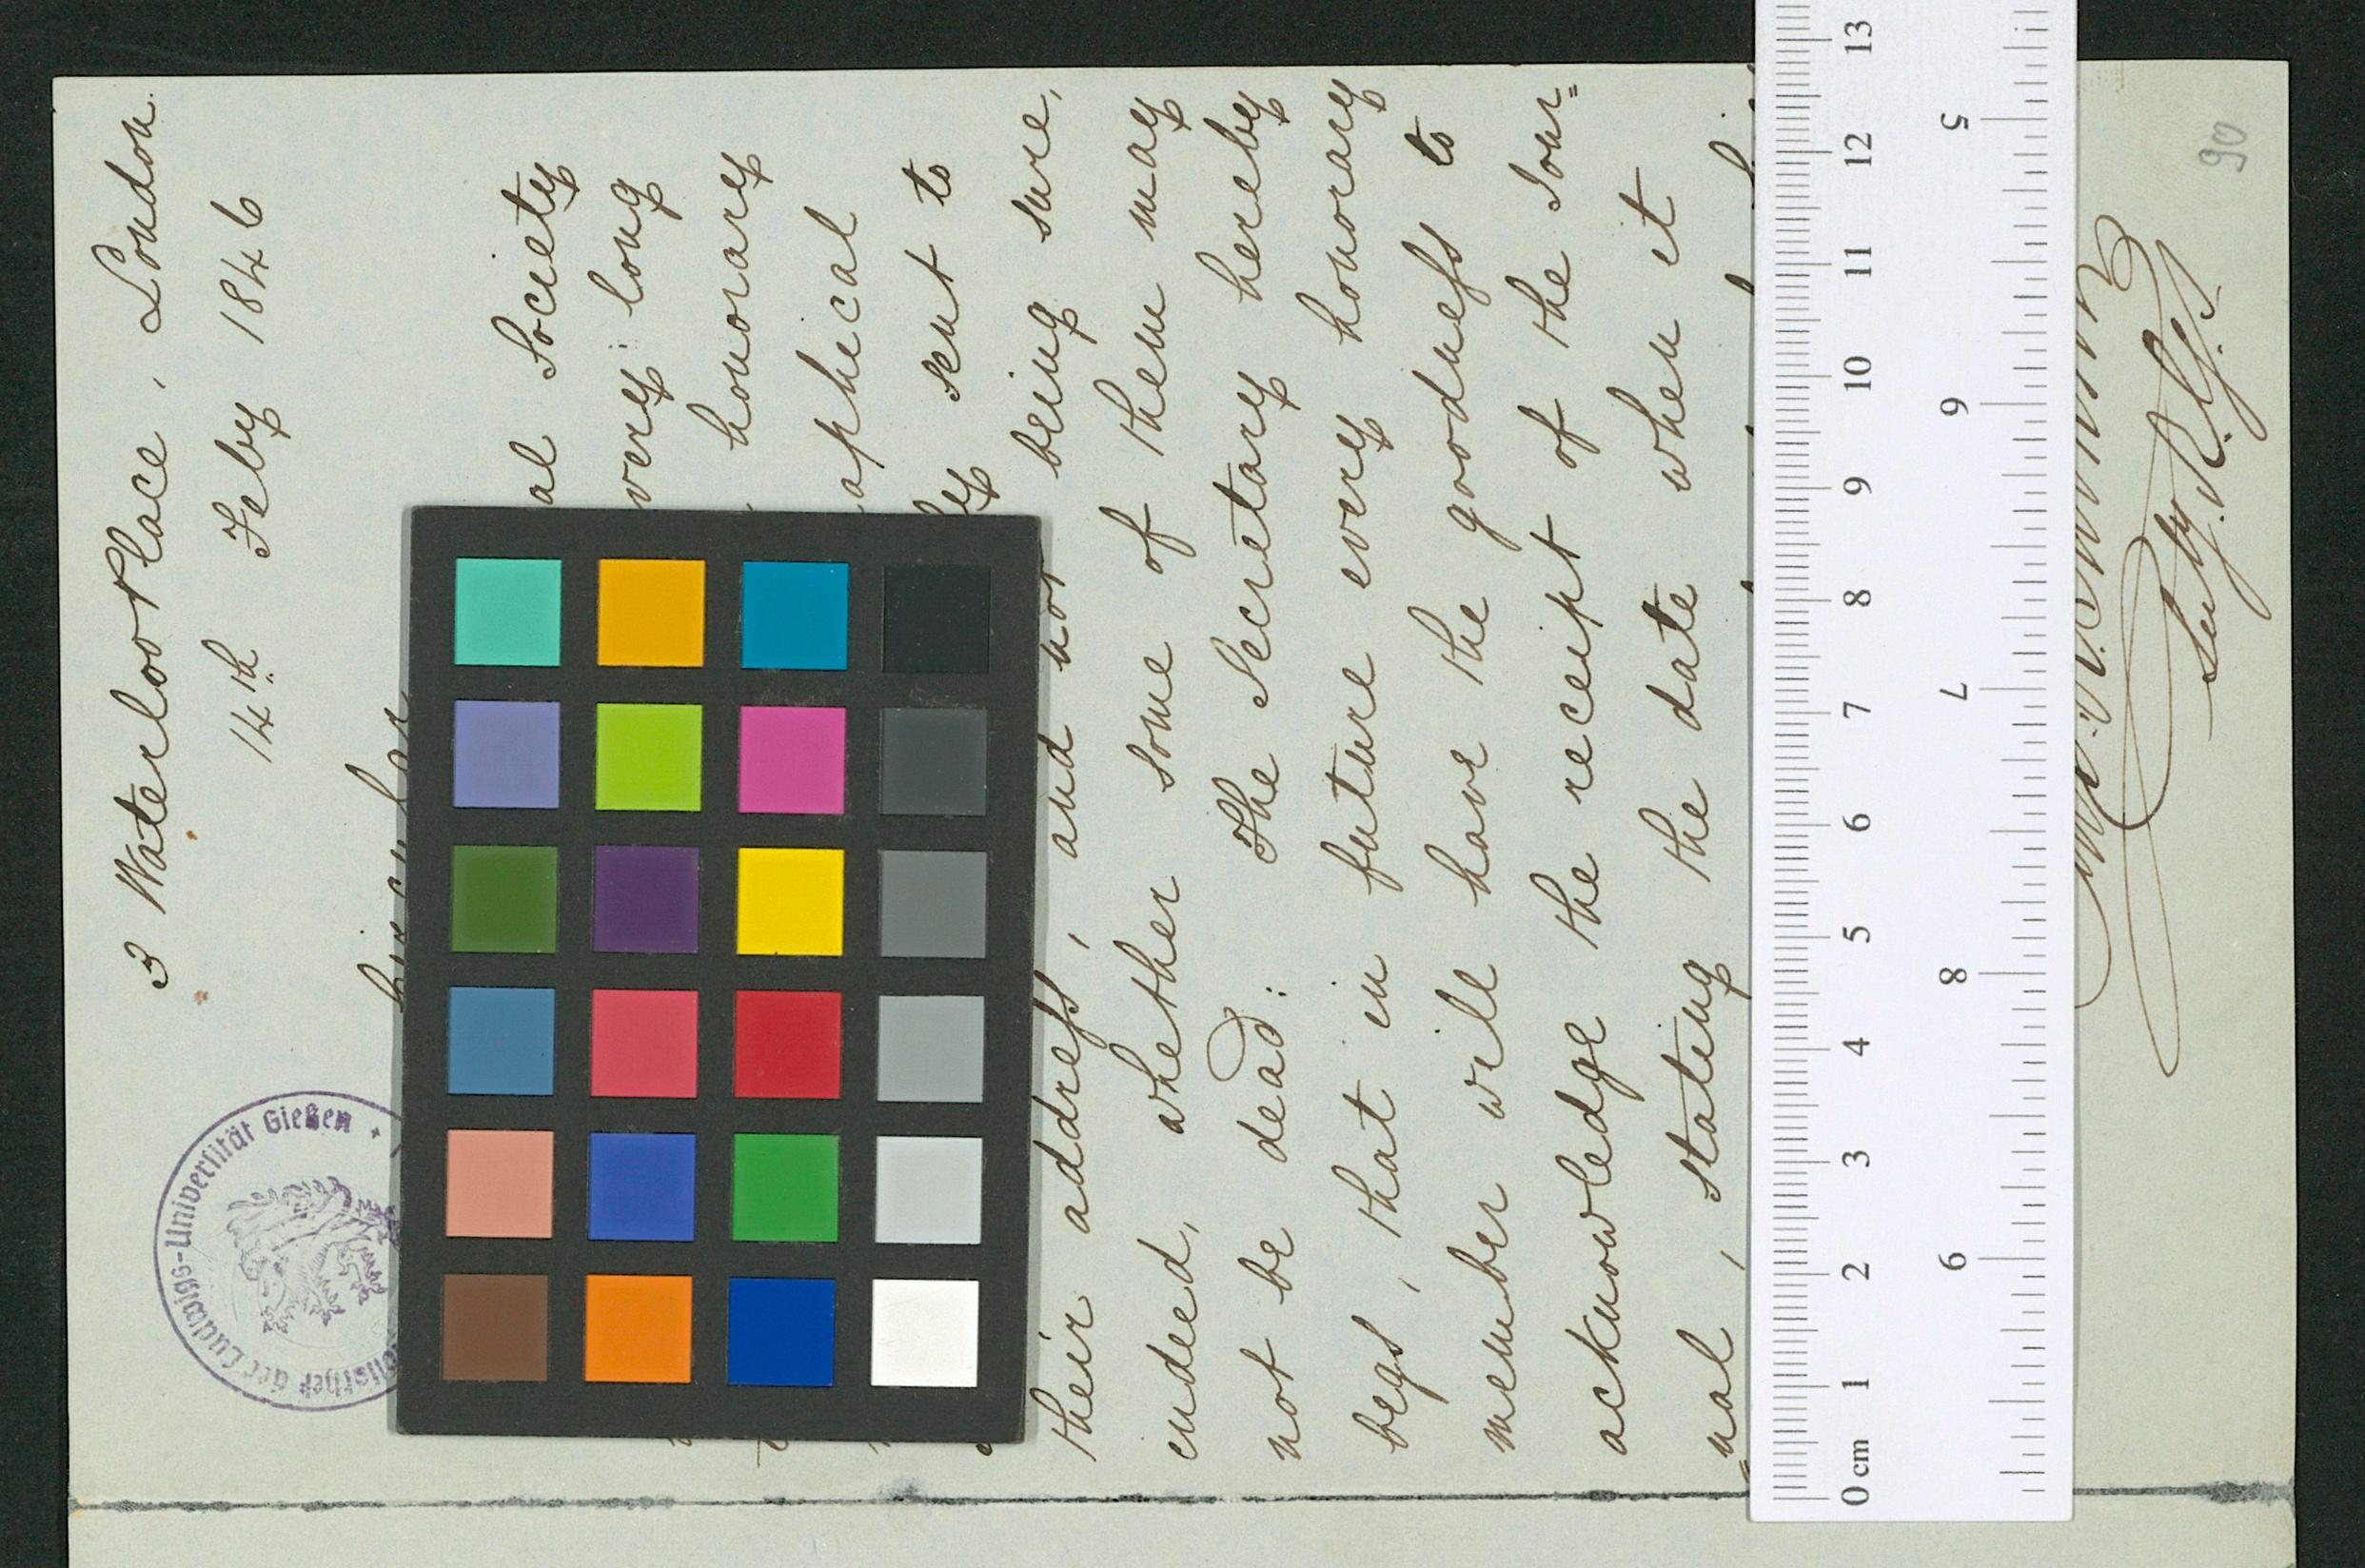 3 Waterloo Place, London.
14th Feby 1846
Circular
al Society
very long
honorary
aphical
ly sent to
their address, and not being sure,
indeed, whether some of them may
not be dead: The Secretary hereby
begs, that in future every honorary
member will have the goodness to
acknowledge the receipt of the Jour=
=nal, stating the date when it
Secty R.G.S.
90
Ludwigs-Universität Gießen
0 cm 1 2 3 4 5 6 7 8 9 10 11 12 13
9 8 7 6 5